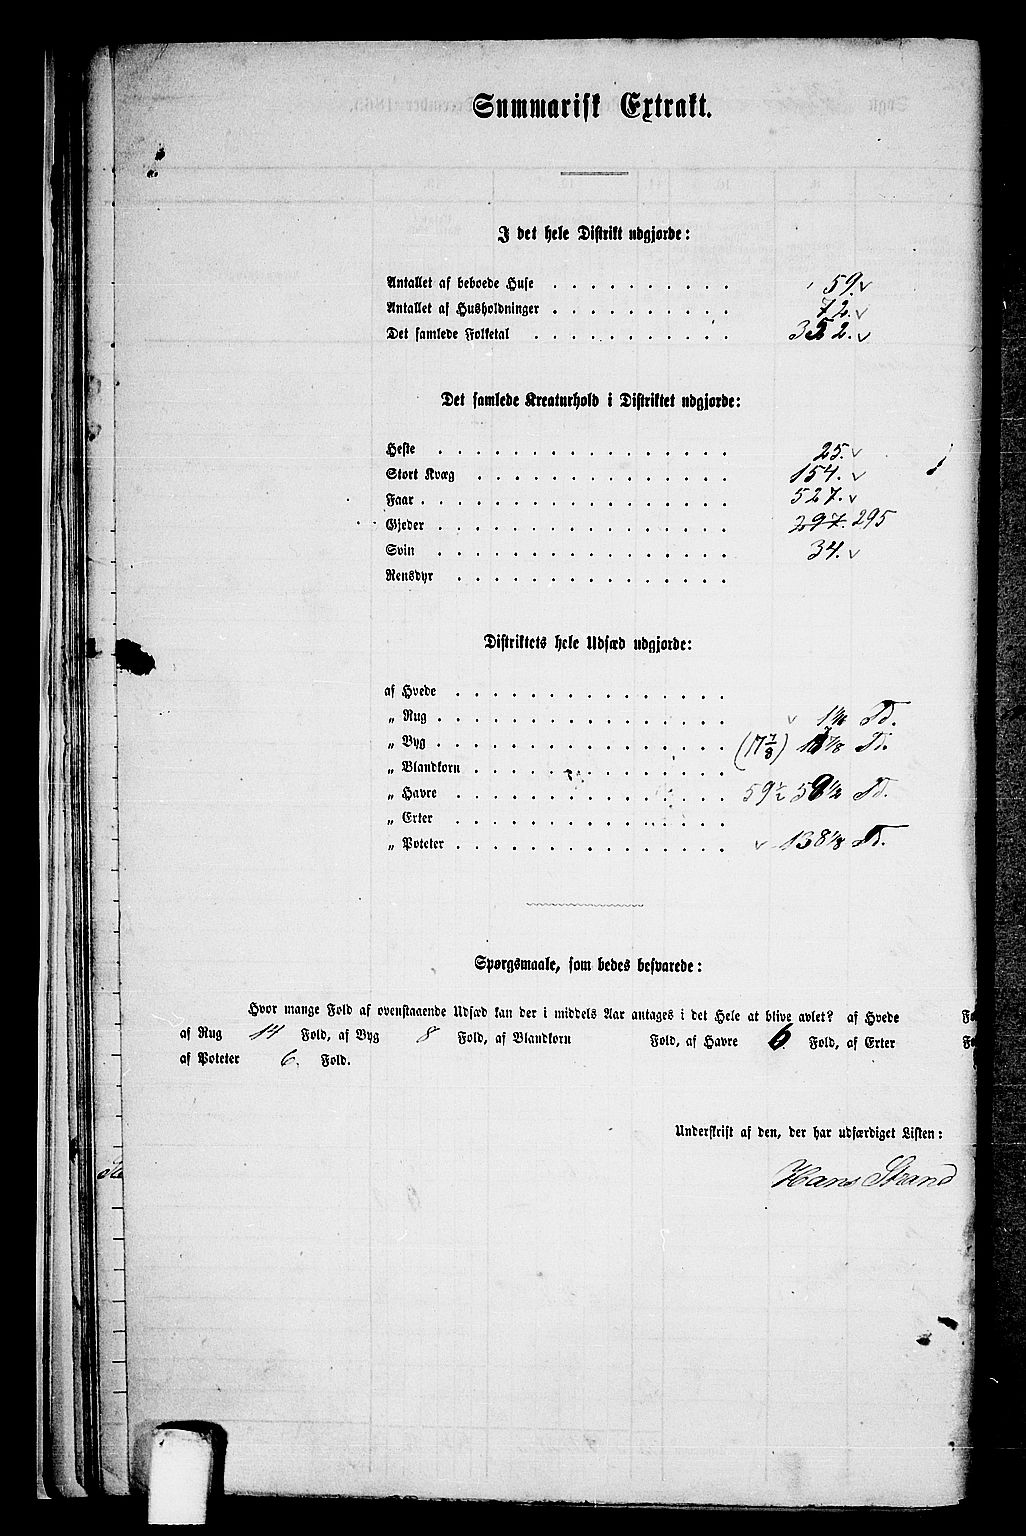 Summarisk Extrakt.
I det hele Distrikt udgjorde:
Antallet af beboede Huse . . . . . . . . . . 59.
Antallet af Husholdninger . . . . . . . . . . 72.
Det samlede Folketal . . . . . . . . . . . 352.
Det samlede Kreaturhold i Distriktet udgjorde:
Heste . . . . . . . . . . . . . . . . 25.
Stort Kvæg . . . . . . . . . . . . . . 154.
Faar . . . . . . . . . . . . . . . . . 527.
Gjeder . . . . . . . . . . . . . . . . 297. 295
Svin . . . . . . . . . . . . . . . . 34.
Rensdyr . . . . . . . . . . . . . . .
Distriktets hele Udsæd udgjorde:
af Hvede . . . . . . . . . . . . . . .
„ Rug . . . . . . . . . . . . . . . . Td.
„ Byg . . . . . . . . . . . . . . . . (17 7/8) 17 7/8 Td.
„ Blandkorn . . . . . . . . . . . . . .
„ Havre . . . . . . . . . . . . . . . 59 1/2 59 1/2 Td.
„ Erter . . . . . . . . . . . . . . .
„ Poteter . . . . . . . . . . . . . . . 138 1/8 Td.
Spørgsmaale, som bedes besvarede:
Hvor mange Fold af ovenstaaende Udsæd kan der i middels Aar antages i det Hele at blive avlet? af Hvede Fo
af Rug 14 Fold, af Byg 8 Fold, af Blandkorn Fold, af Havre 6 Fold, af Erter Fo
af Poteter 6. Fold.
Underskrift af den, der har udfærdiget Listen:
Hans Strand